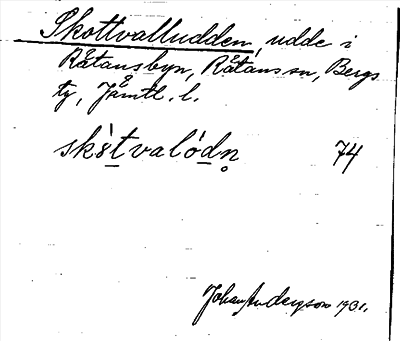 Skottvalludden, udde i
Råtansbyn, Råtans sn, Bergs
ty, Jämtl. l.
skè̠tvalód̠n̥ 74
Johan Anderson 1931.